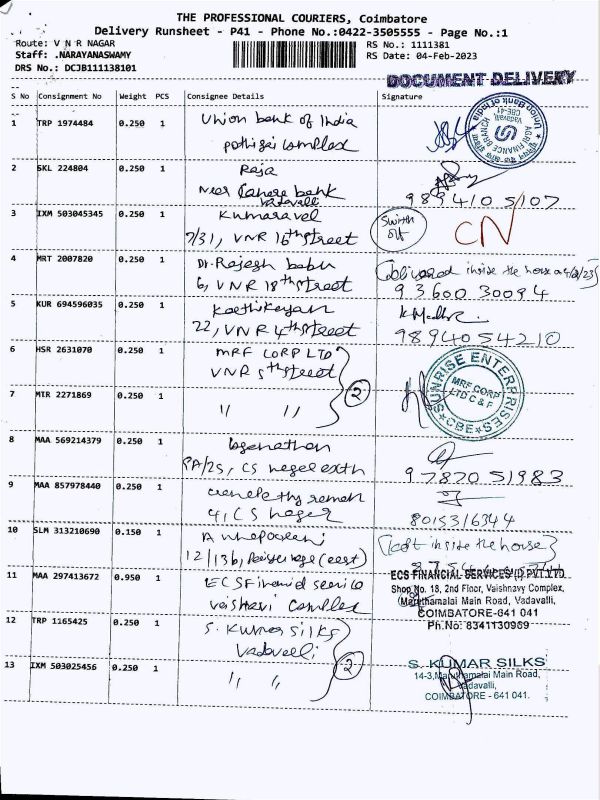 THE PROFESSIONAL COURIERS, Coimbatore
Delivery Runsheet - P41 - Phone No.:0422-3505555 - Page No.:1
Route: V N R NAGAR
RS No.: 1111381
Staff: .NARAYANASWAMY
RS Date: 04-Feb-2023
DRS No.: DCJB111138101
DOCUMENT DELIVERY
S No Consignment No Weight PCS Consignee Details Signature
1 TRP 1974484 0.250 1 Union bank of India
pothigai complex
Union Bank of India
AGRI FINANCE BRANCH
Vadavalli
CBE-41
2 SKL 224804 0.250 1 Raja
Near Canara bank
Vadavalli
989410 5107
3 IXM 503045345 0.250 1 Kumaravel
7/31, VNR 16th street
Switch
off
CN
4 MRT 2007820 0.250 1 Dr. Rajesh babu
6, VNR 18th street
(Delivered inside the house
93600 30094
5 KUR 694596035 0.250 1 Karthikeyan
22, VNR 4th street
98940 54210
6 HSR 2631070 0.250 1 MRF CORP LTD
VNR 5th street
7 MTR 2271869 0.250 1 " "
2
SUNRISE ENTERPRISES
MRF CORP
LTD C & F
CBE
8 MAA 569214379 0.250 1
PA/25, CS nagar extn
97870 51983
9 MAA 857978440 0.250 1
4, CS nagar
8015316344
10 SLM 313210690 0.150 1
12/136, (east)
(kept inside the house)
11 MAA 297413672 0.950 1 ECS Financial service
vaishnavi complex
ECS FINANCIAL SERVICES (I) PVT LTD
Shop No. 18, 2nd Floor, Vaishnavy Complex,
Maruthamalai Main Road, Vadavalli,
COIMBATORE-641 041
Ph.No: 8341130969
12 TRP 1165425 0.250 1 S. Kumar silks
Vadavalli
13 IXM 503025456 0.250 1 " "
2
S. KUMAR SILKS
14-3, Maruthamalai Main Road,
Vadavalli,
COIMBATORE - 641 041.